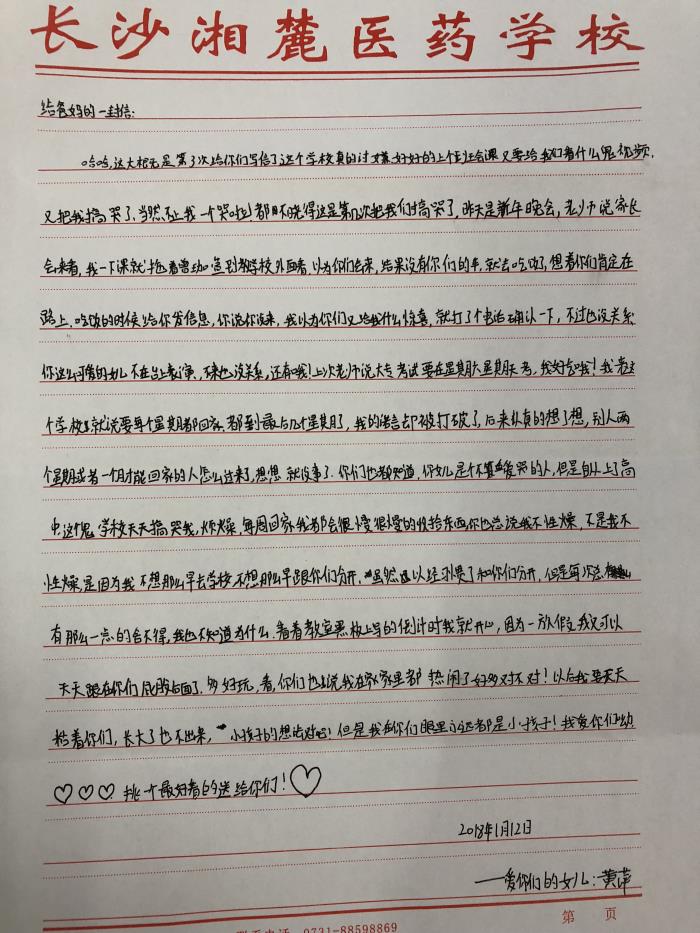 长沙湘麓医药学校
给爸妈的一封信:
哈哈,这大概是第3次给你们写信了这个学校真的讨嫌,好好的上个班会课又要给我们看什么鬼视频,
又把我搞哭了,当然不止我一个哭啦!都不晓得这是第几次把我们搞哭了,昨天是新年晚会,老师说家长
会来看,我一下课就拖着曾珈鱼到教学校外面看,以为你们会来,结果没有你们的车,就去吃饭了,想着你们肯定在
路上,吃饭的时候给你发信息,你说你没来,我以为你们又给我什么惊喜,就打了个电话确认一下,不过也没关系
你这么可爱的女儿不在台上表演,不来也没关系,还有哦!上次老师说大专考试要在星期六星期天考,我好气哦!我来这
个学校就说要每个星期都回家,都到最后几个星期了,我的诺言却被打破了,后来认真的想了想,别人两
个星期或者一个月才能回家的人怎么过来了,想想就没事了.你们也都知道,你女儿是个不算爱哭的人,但是自从上了高
中,这个鬼学校天天搞哭我,烦燥,每周回家我都会很慢很慢的收拾东西你也总说我不性燥,不是我不
性燥,是因为我不想那么早去学校,不想那么早跟你们分开,虽然以经习惯了和你们分开,但是每次总
有那么一点的舍不得,我也不知道为什么.看看教室黑板上写的倒计时我就开心,因为一放假我又可以
天天跟在你们屁股后面了.多好玩,看,你们也说我在家家里都热闹了好多对不对!以后我要天天
粘着你们,长大了也不出来,小孩子的想法对吧!但是我在你们眼里永远都是小孩子!我爱你们哟
♡♡♡挑一个最好看的送给你们!♡
2018年1月12日
——爱你们的女儿:黄萍
0731-88598869
第 页